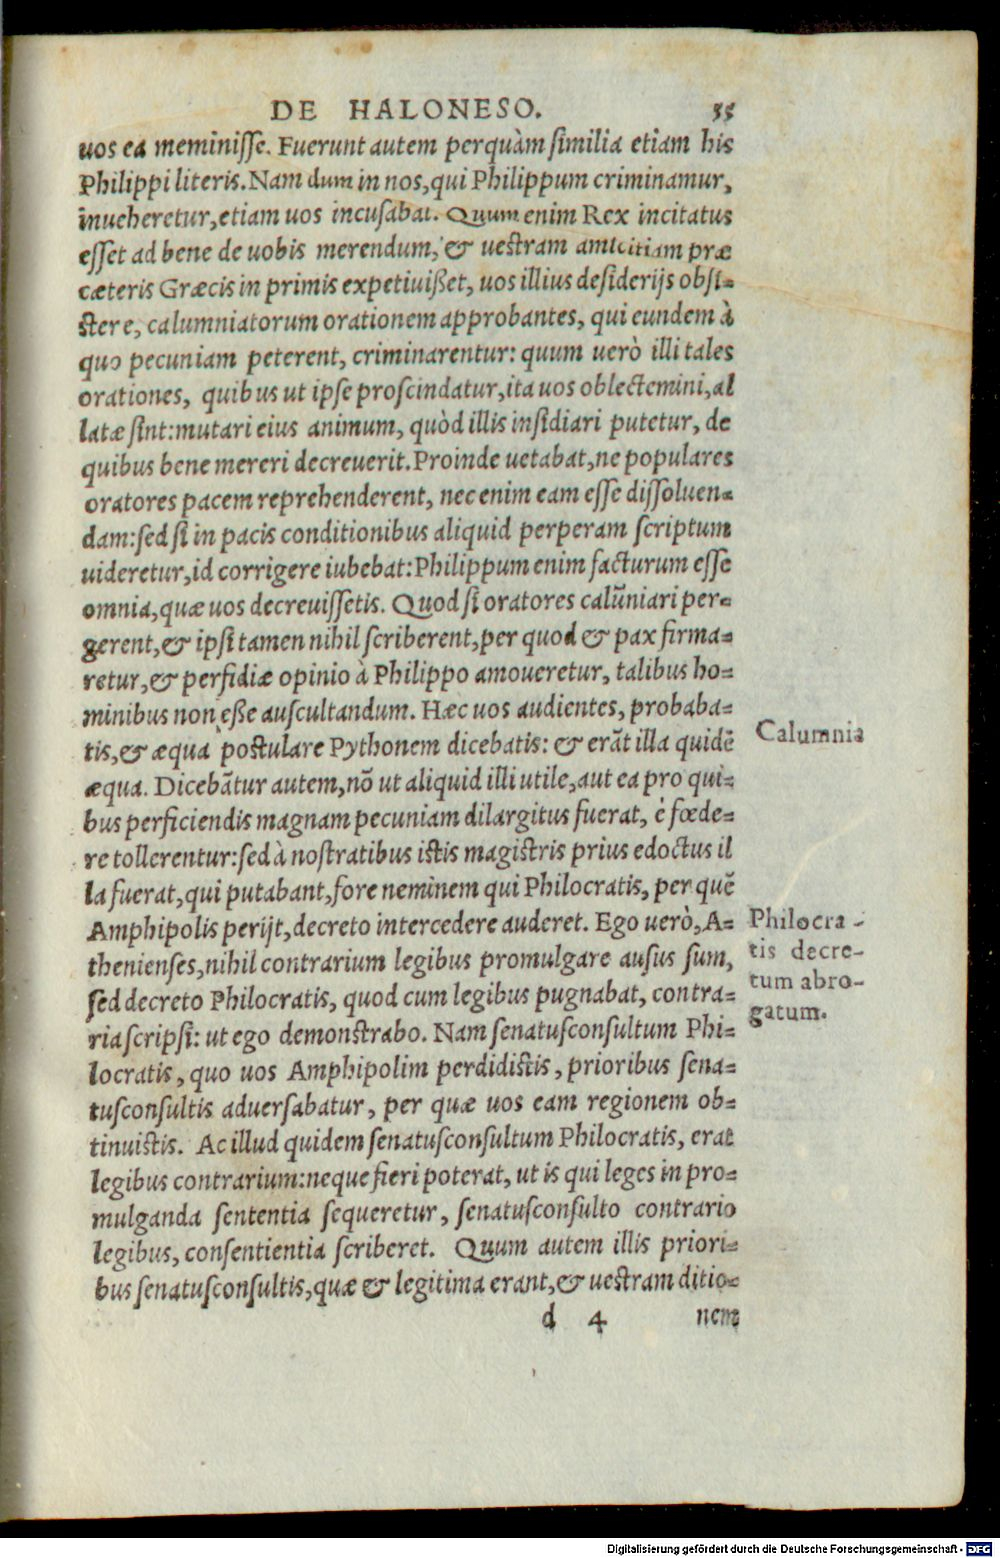 DE HALONESO. 55
uos ea meminisse. Fuerunt autem perquàm similia etiam his
Philippi literis. Nam dum in nos, qui Philippum criminamur,
inueheretur, etiam uos incusabat. Quum enim Rex incitatus
esset ad bene de uobis merendum, & uestram amicitiam præ
cæteris Græcis in primis expetiuißet, uos illius desiderijs obsi=
stere, calumniatorum orationem approbantes, qui eundem à
quo pecuniam peterent, criminarentur: quum uerò illi tales
orationes, quibus ut ipse proscindatur, ita uos oblectemini, al
latæ sint: mutari eius animum, quòd illis insidiari putetur, de
quibus bene mereri decreuerit. Proinde uetabat, ne populares
oratores pacem reprehenderent, nec enim eam esse dissoluen=
dam: sed si in pacis conditionibus aliquid perperam scriptum
uideretur, id corrigere iubebat: Philippum enim facturum esse
omnia, quæ uos decreuissetis. Quod si oratores calũniari per=
gerent, & ipsi tamen nihil scriberent, per quod & pax firma=
retur, & perfidiæ opinio à Philippo amoueretur, talibus ho=
minibus non eße auscultandum. Hæc uos audientes, probaba=
tis, & æqua postulare Pythonem dicebatis: & erãt illa quidẽ
æqua. Dicebãtur autem, nõ ut aliquid illi utile, aut ea pro qui=
bus perficiendis magnam pecuniam dilargitus fuerat, è fœde=
re tollerentur: sed à nostratibus istis magistris prius edoctus il
la fuerat, qui putabant, fore neminem qui Philocratis, per quẽ
Amphipolis perijt, decreto intercedere auderet. Ego uerò, A=
thenienses, nihil contrarium legibus promulgare ausus sum,
sed decreto Philocratis, quod cum legibus pugnabat, contra=
ria scripsi: ut ego demonstrabo. Nam senatusconsultum Phi=
locratis, quo uos Amphipolim perdidistis, prioribus sena=
tusconsultis aduersabatur, per quæ uos eam regionem ob=
tinuistis. Ac illud quidem senatusconsultum Philocratis, erat
legibus contrarium: neque fieri poterat, ut is qui leges in pro=
mulganda sententia sequeretur, senatusconsulto contrario
legibus, consentientia scriberet. Quum autem illis priori=
bus senatusconsultis, quæ & legitima erant, & uestram ditio=
d 4 nem
Calumnia
Philocra-
tis decre-
tum abro-
gatum.
Digitalisierung gefördert durch die Deutsche Forschungsgemeinschaft - DFG